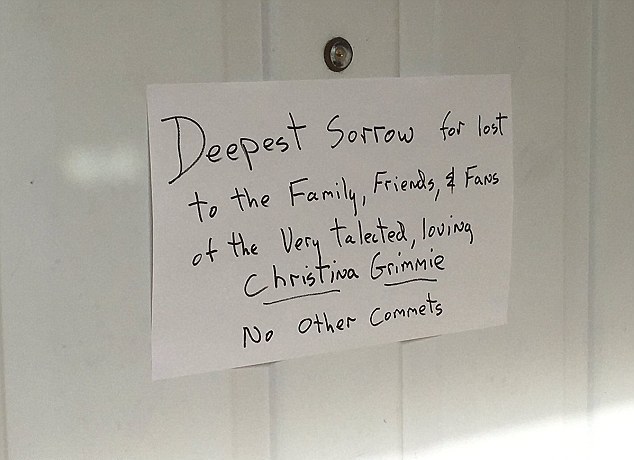 Deepest Sorrow for lost
to the Family, Friends, & Fans
of the Very talected, loving
Christina Grimmie
No Other Commets